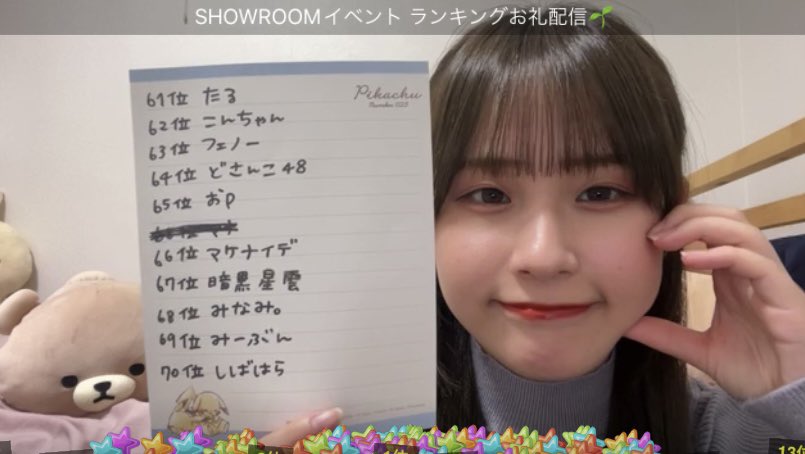 SHOWROOMイベント ランキングお礼配信🌱
Pikachu
Number 025
61位 たる
62位 こんちゃん
63位 フェノー
64位 どさんこ48
65位 おP
66位 マケナイデ
67位 暗黒星雲
68位 みなみ。
69位 みーぶん
70位 ししばはら